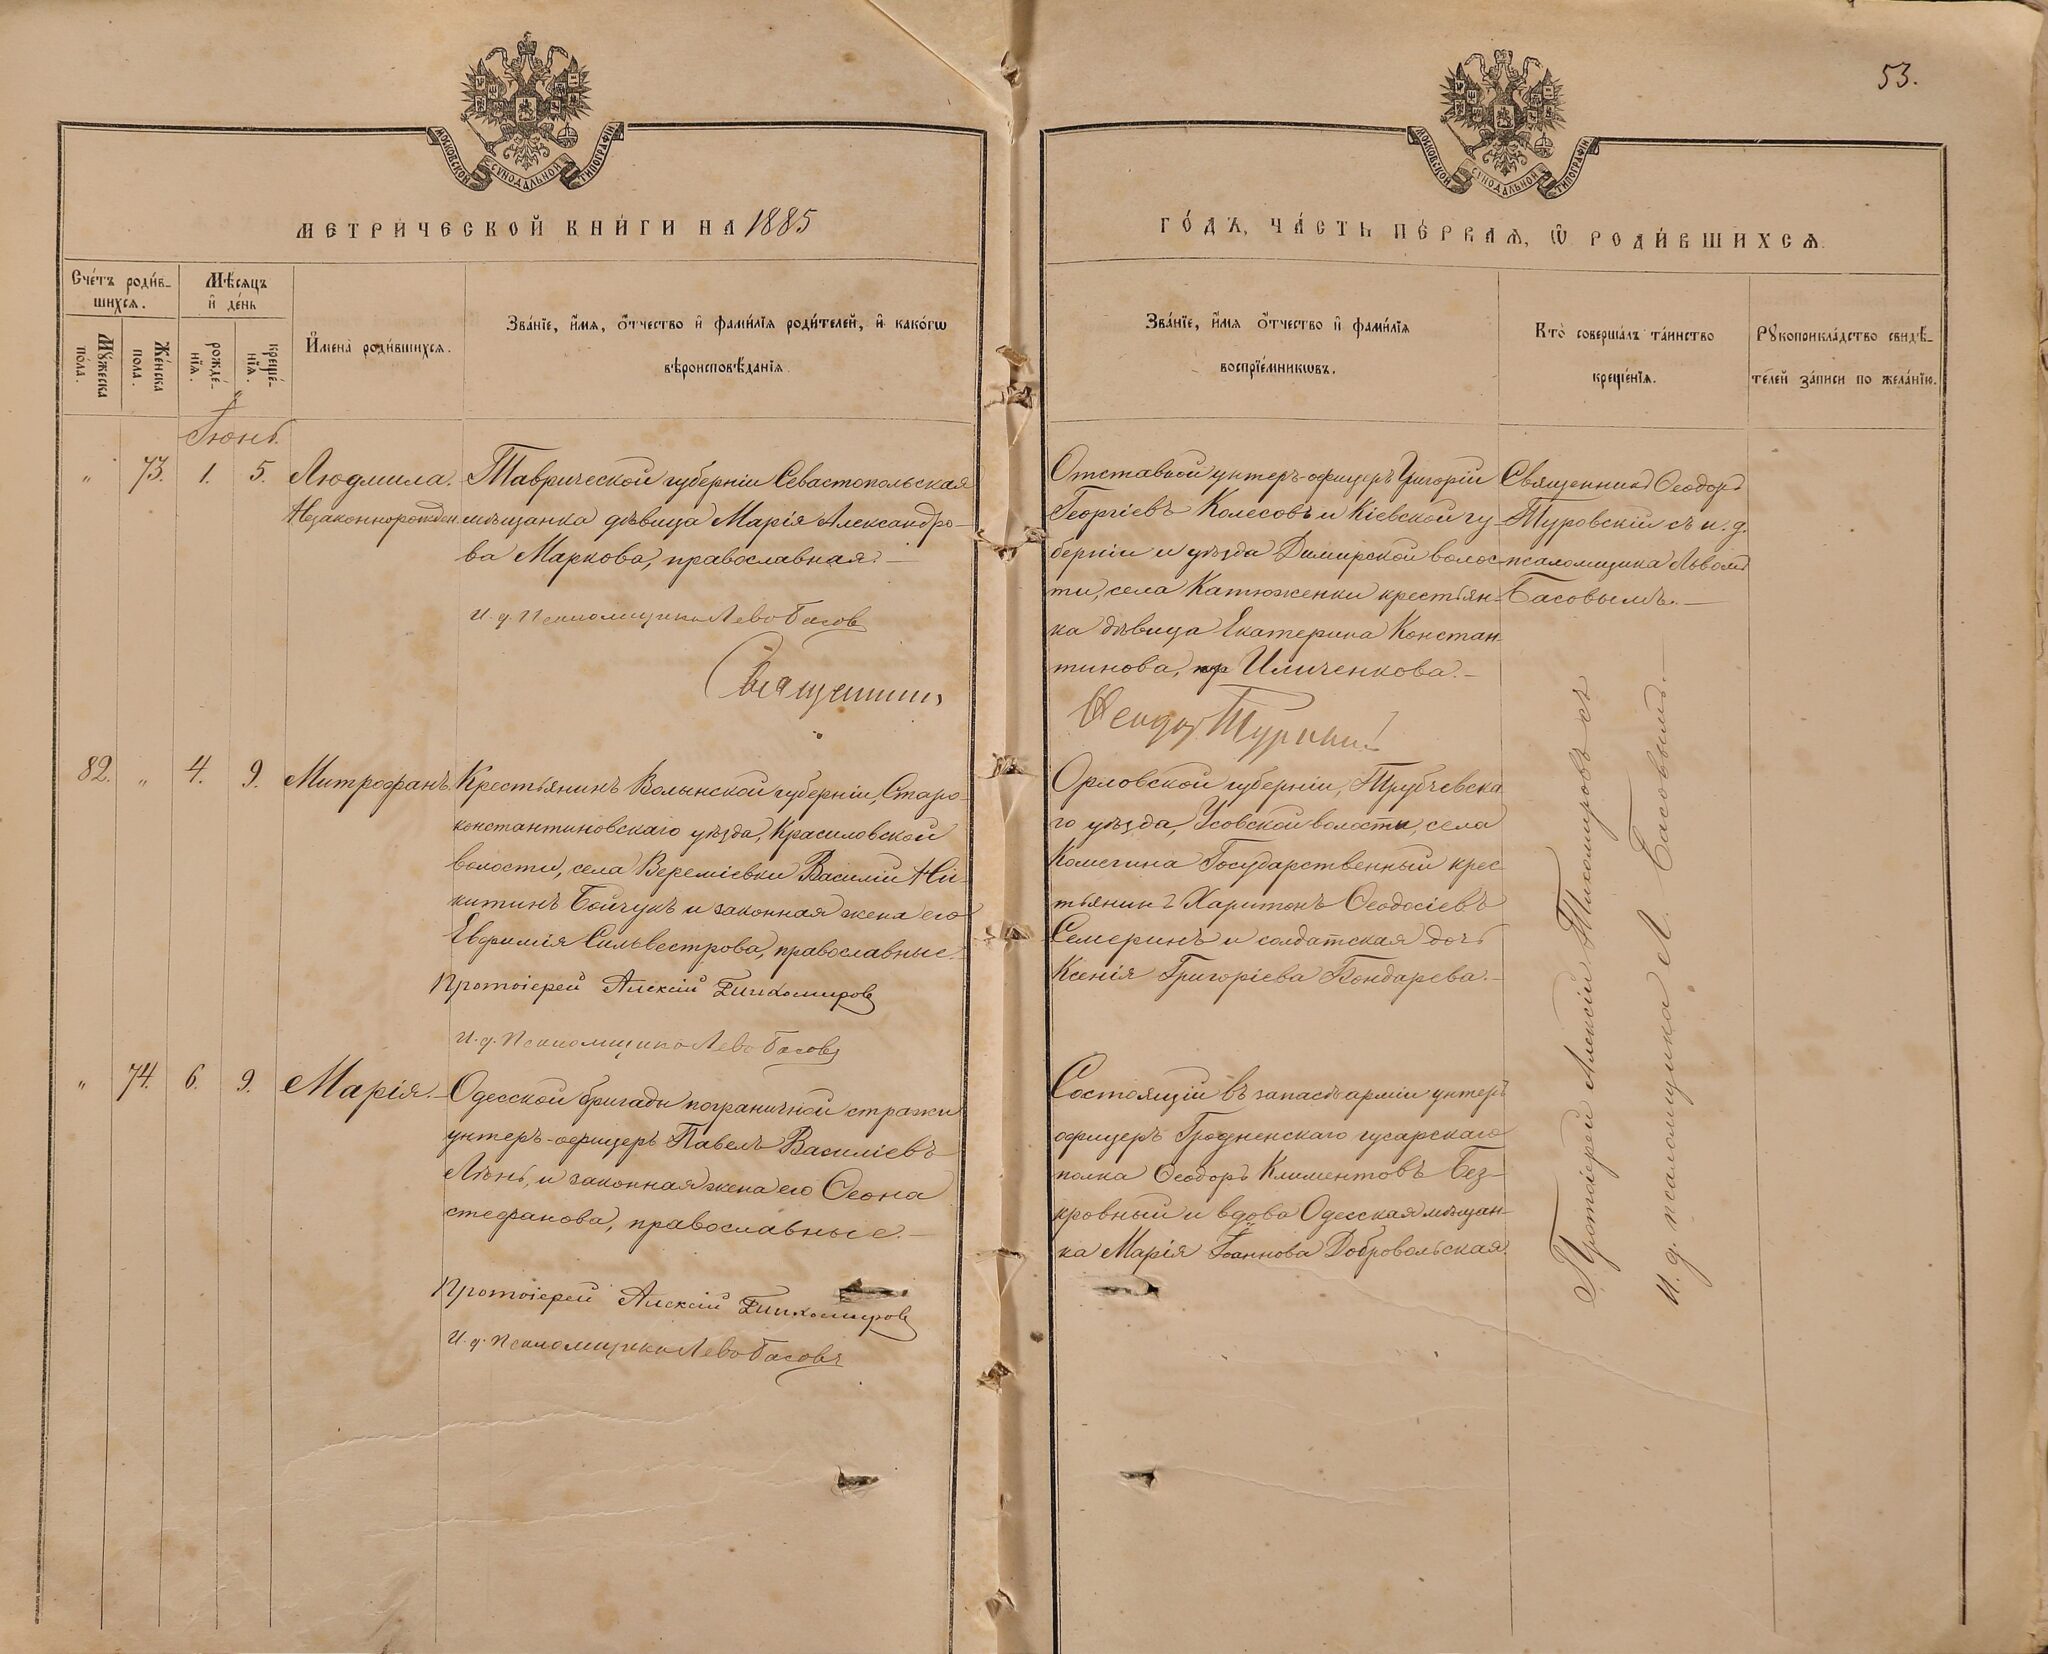 53.
МОСКОВСКОЙ СѴНОДАЛЬНОЙ ТИПОГРАФІИ
МОСКОВСКОЙ СѴНОДАЛЬНОЙ ТИПОГРАФІИ
МЕТРИ́ЧЕСКОЙ КНИ́ГИ НА 1885
ГО́ДЪ, ЧА́СТЬ ПЕ́РВАѦ, Ѡ҆ РОДИ́ВШИХСѦ.
Сче́тъ роди́в-
шихсѧ.
Мꙋ́жеска по́ла.
Же́нска пола.
Мѣ́сяцъ
и҆ де́нь
рожде́-
нїѧ.
креще́-
нїѧ.
И҆мена̀ роди́вшихсѧ.
Зва́нїе, и҆́мѧ, ѻ҆́тчество и҆ фами́лїѧ роди́телей, и҆ како́гѡ
вѣроисповѣ́данїѧ.
Зва́нїе, и҆́мѧ ѻ҆́тчество и҆ фами́лїѧ
воспрїе́мникѡвъ.
Кто̀ соверша́лъ та́инство
креще́нїѧ.
Рꙋкоприкла́дство свидѣ́-
телей за́писи по жела́нїю.
Іюнь.
" 73. 1. 5. Людмила. Таврической губерніи Севастопольская
Незаконнорожден. мѣщанка дѣвица Марія Александро-
ва Маркова, православная.—
И. д. Псаломщика Левъ Басовъ
Священникъ
Отставной унтеръ-офицеръ Григорій
Георгіевъ Колесовъ и Кіевской гу-
берніи и уѣзда Димирской волос-
ти, села Катюженки крестьян-
ка дѣвица Екатерина Констан
тинова, Ильченкова.—
Ѳеодоръ Туровскій
Священникъ Ѳеодоръ
Туровскій съ и. д.
псаломщика Львомъ
Басовымъ.—
82. " 4. 9. Митрофанъ. Крестьянинъ Волынской губерніи, Старо-
константиновскаго уѣзда, Красиловской
волости, села Вереміевки Василій Ни-
китинъ Бойчукъ и законная жена его
Евфимія Сильвестрова, православные.
Протоіерей Алексій Тихомировъ
И. д. Псаломщика Левъ Басовъ
Орловской губерніи, Трубчевска
го уѣзда, Усовской волости, села
Государственный крес
тьянинъ Харитонъ Ѳеодосіевъ
Семеринъ и солдатская дочь
Ксенія Григоріева Бондарева.—
" 74. 6. 9. Марія.— Одесской бригады пограничной стражи
унтеръ-офицеръ Павелъ Василіевъ
Лѣнь, и законная жена его Ѳеона
Стефанова, православные.—
Протоіерей Алексій Тихомировъ
И. д. Псаломщика Левъ Басовъ
Состоящій въ запасѣ арміи унтеръ
офицеръ Гродненскаго гусарскаго
полка Ѳеодоръ Климентовъ Без-
кровный и вдова Одесская мѣщан-
ка Марія Іоаннова Добровольская.
Протоіерей Алексій Тихомировъ съ
и. д. псаломщика Л. Басовымъ.—